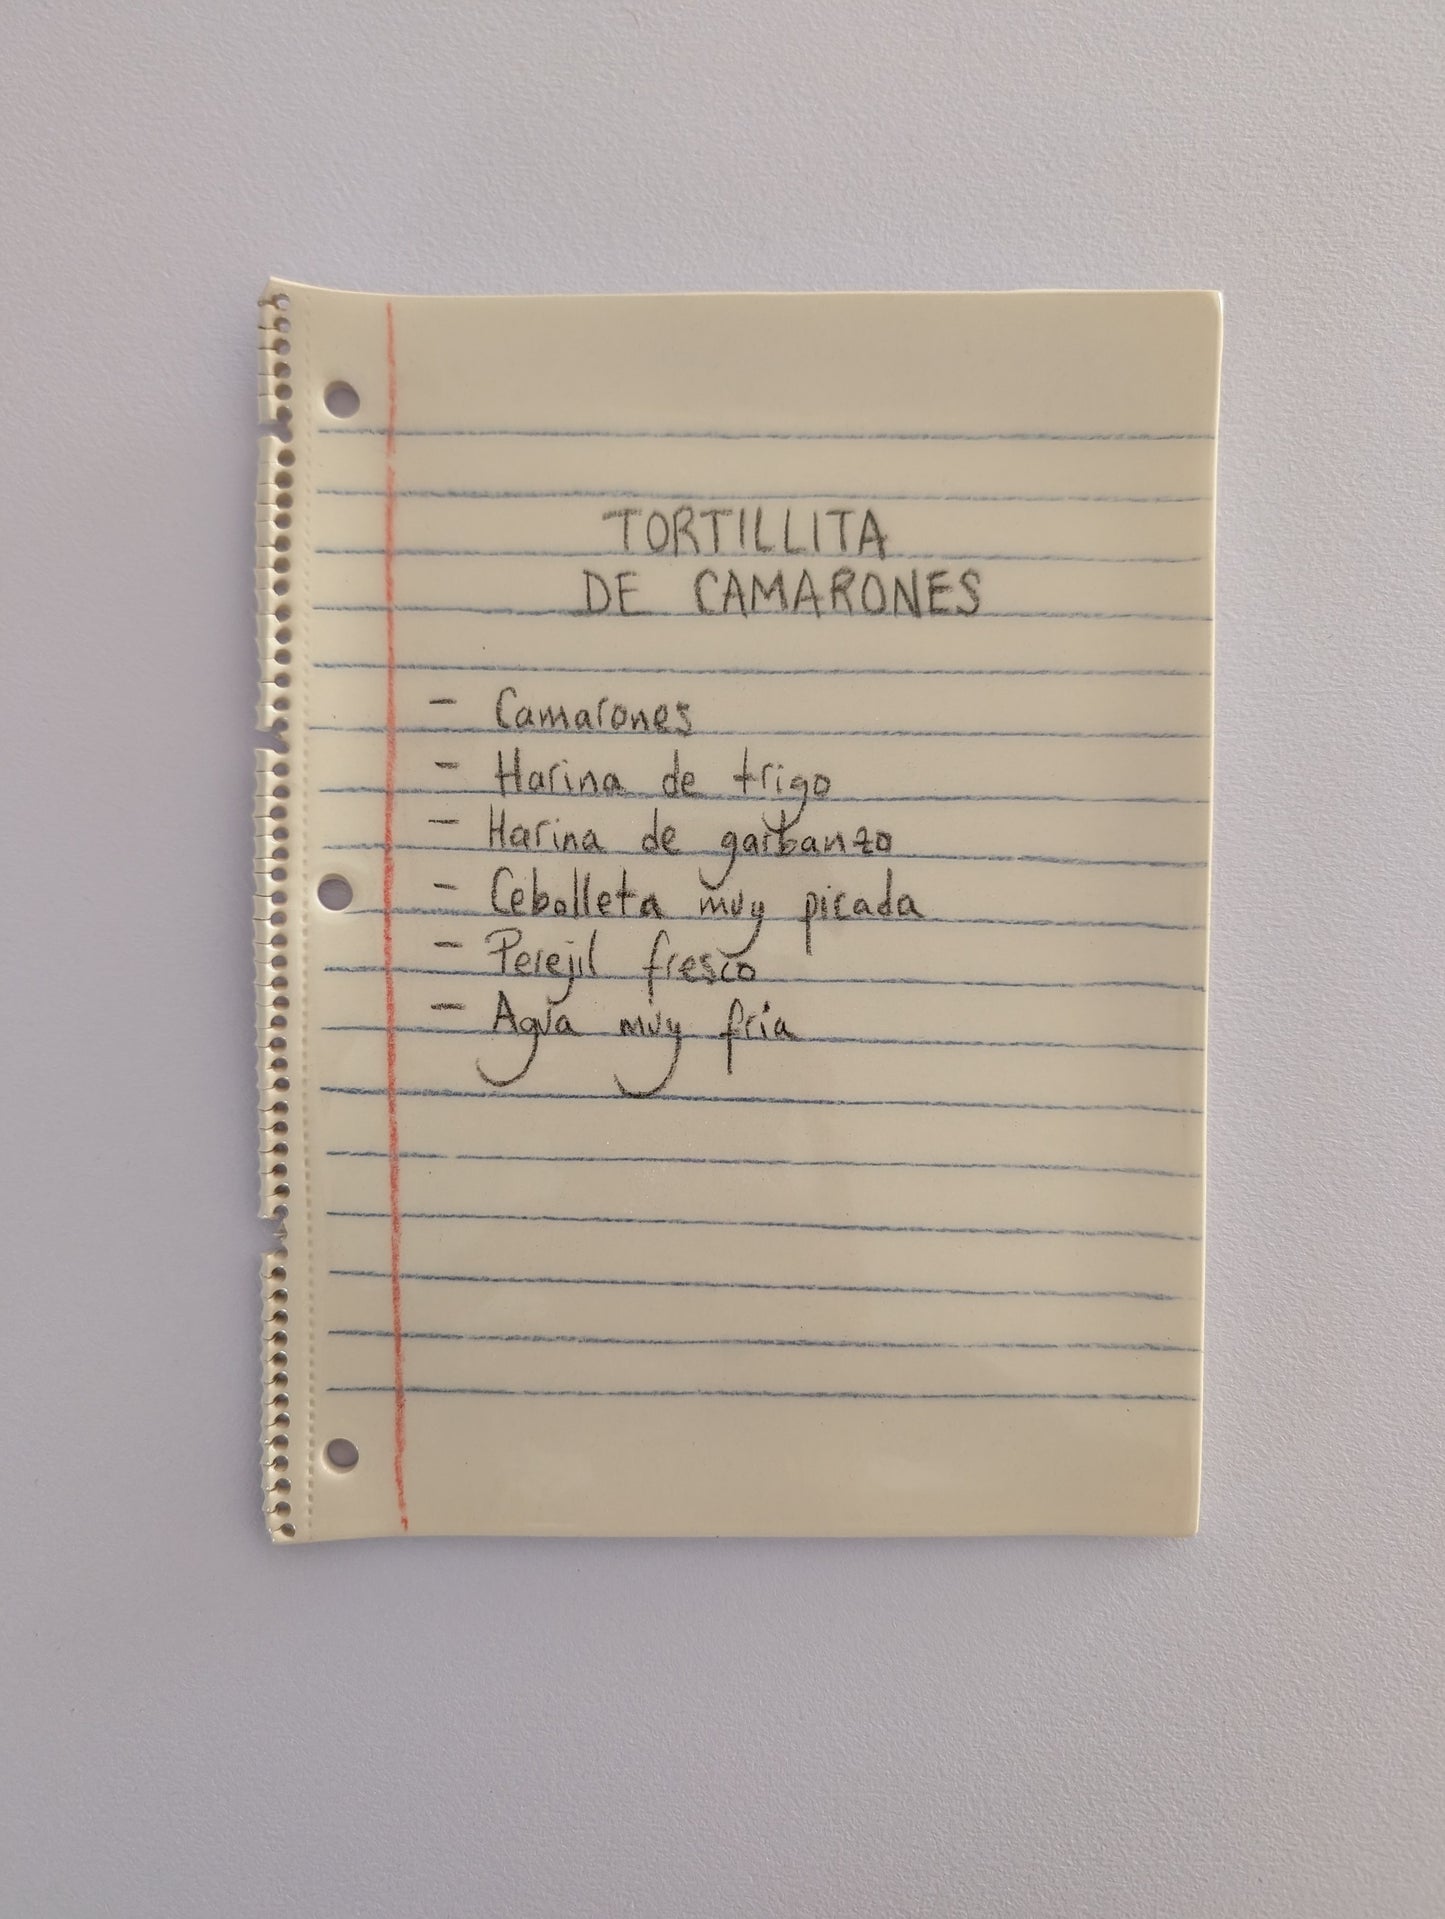 TORTILLITA
DE CAMARONES
- Camarones
- Harina de trigo
- Harina de garbanzo
- Cebolleta muy picada
- Perejil fresco
- Agua muy fria